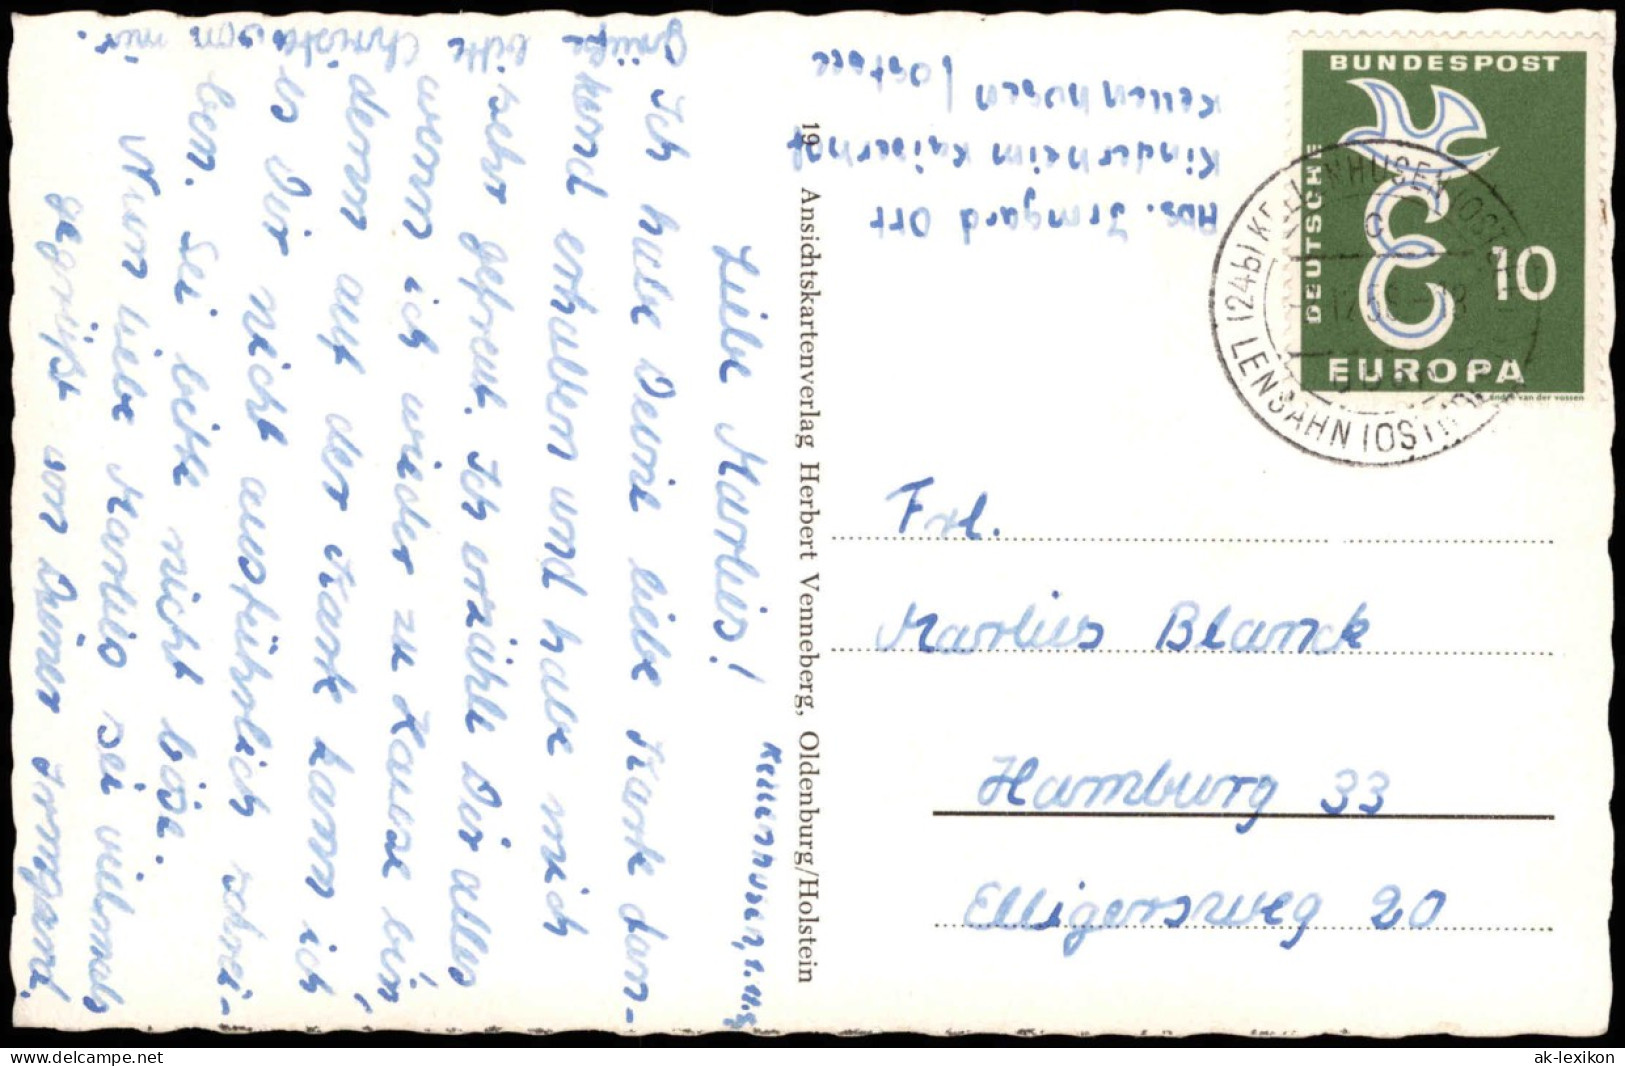 Kellenhusen, 1.11.
Liebe Marlies!
Ich habe Deine liebe Karte dan-
kend erhalten und habe mich
sehr gefreut. Ich erzähle Dir alles
wenn ich wieder zu Hause bin
denn auf der Karte kann ich
es Dir nicht ausführlich schrei-
ben. Sei bitte nicht böse.
Nun liebe Marlies sei vielmals
gegrüßt von Deiner Irmgard.
Grüße bitte Christa von mir.
Abs. Irmgard Ott
Kinderheim Kaiserhof
Kellenhusen / Ostsee
19 Ansichtskartenverlag Herbert Venneberg, Oldenburg/Holstein
BUNDESPOST
DEUTSCHE
10
EUROPA
andré van der vossen
(24b) KELLENHUSEN (OSTSEE)
LENSAHN (OSTHOLST)
C
Frl.
Marlies Blanck
Hamburg 33
Elligersweg 20
ak-ansichtskarten.de
ak-lexikon